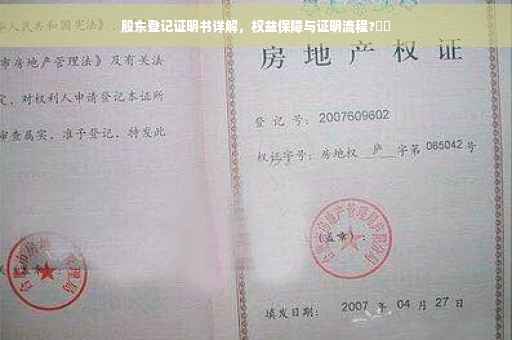 股东登记证明书详解，权益保障与证明流程?
人民共和国宪法》、
市房地产管理法》及有关
定，对权利人申请登记本证所
审查属实，准予登记，特发此
房地产权证
登 记 号：2007609602
权证字号：房地权 庐 字第 085042 号
(盖章)：
填发日期： 2007 年 04 月 27 日